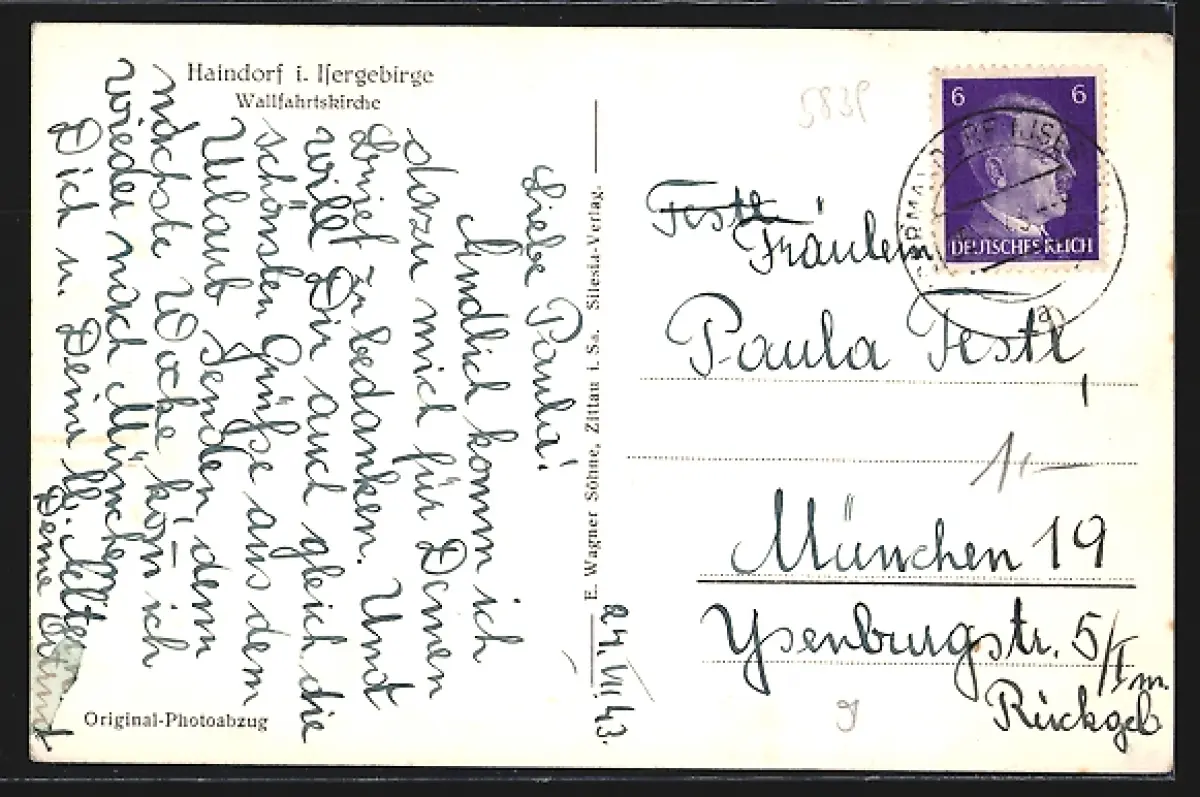 Haindorf i. Isergebirge
Wallfahrtskirche
24. VII. 43.
Liebe Paula!
Endlich komm ich
dazu mich für Deinen
Brief zu bedanken. Und
will Dir auch gleich die
schönsten Grüße aus dem
Urlaub senden, denn
nächste Woche kom̄ ich
wieder nach München.
Dich u. Deine lb. Eltern
Deine
Original-Photoabzug
E. Wagner Söhne, Zittau i. Sa. Silesia-Verlag.
583P
6 6
DEUTSCHES REICH
a
Festl
Fräulein
Paula Festl,
1,—
München 19
Ysenburgstr. 5/I m.
Rückgeb